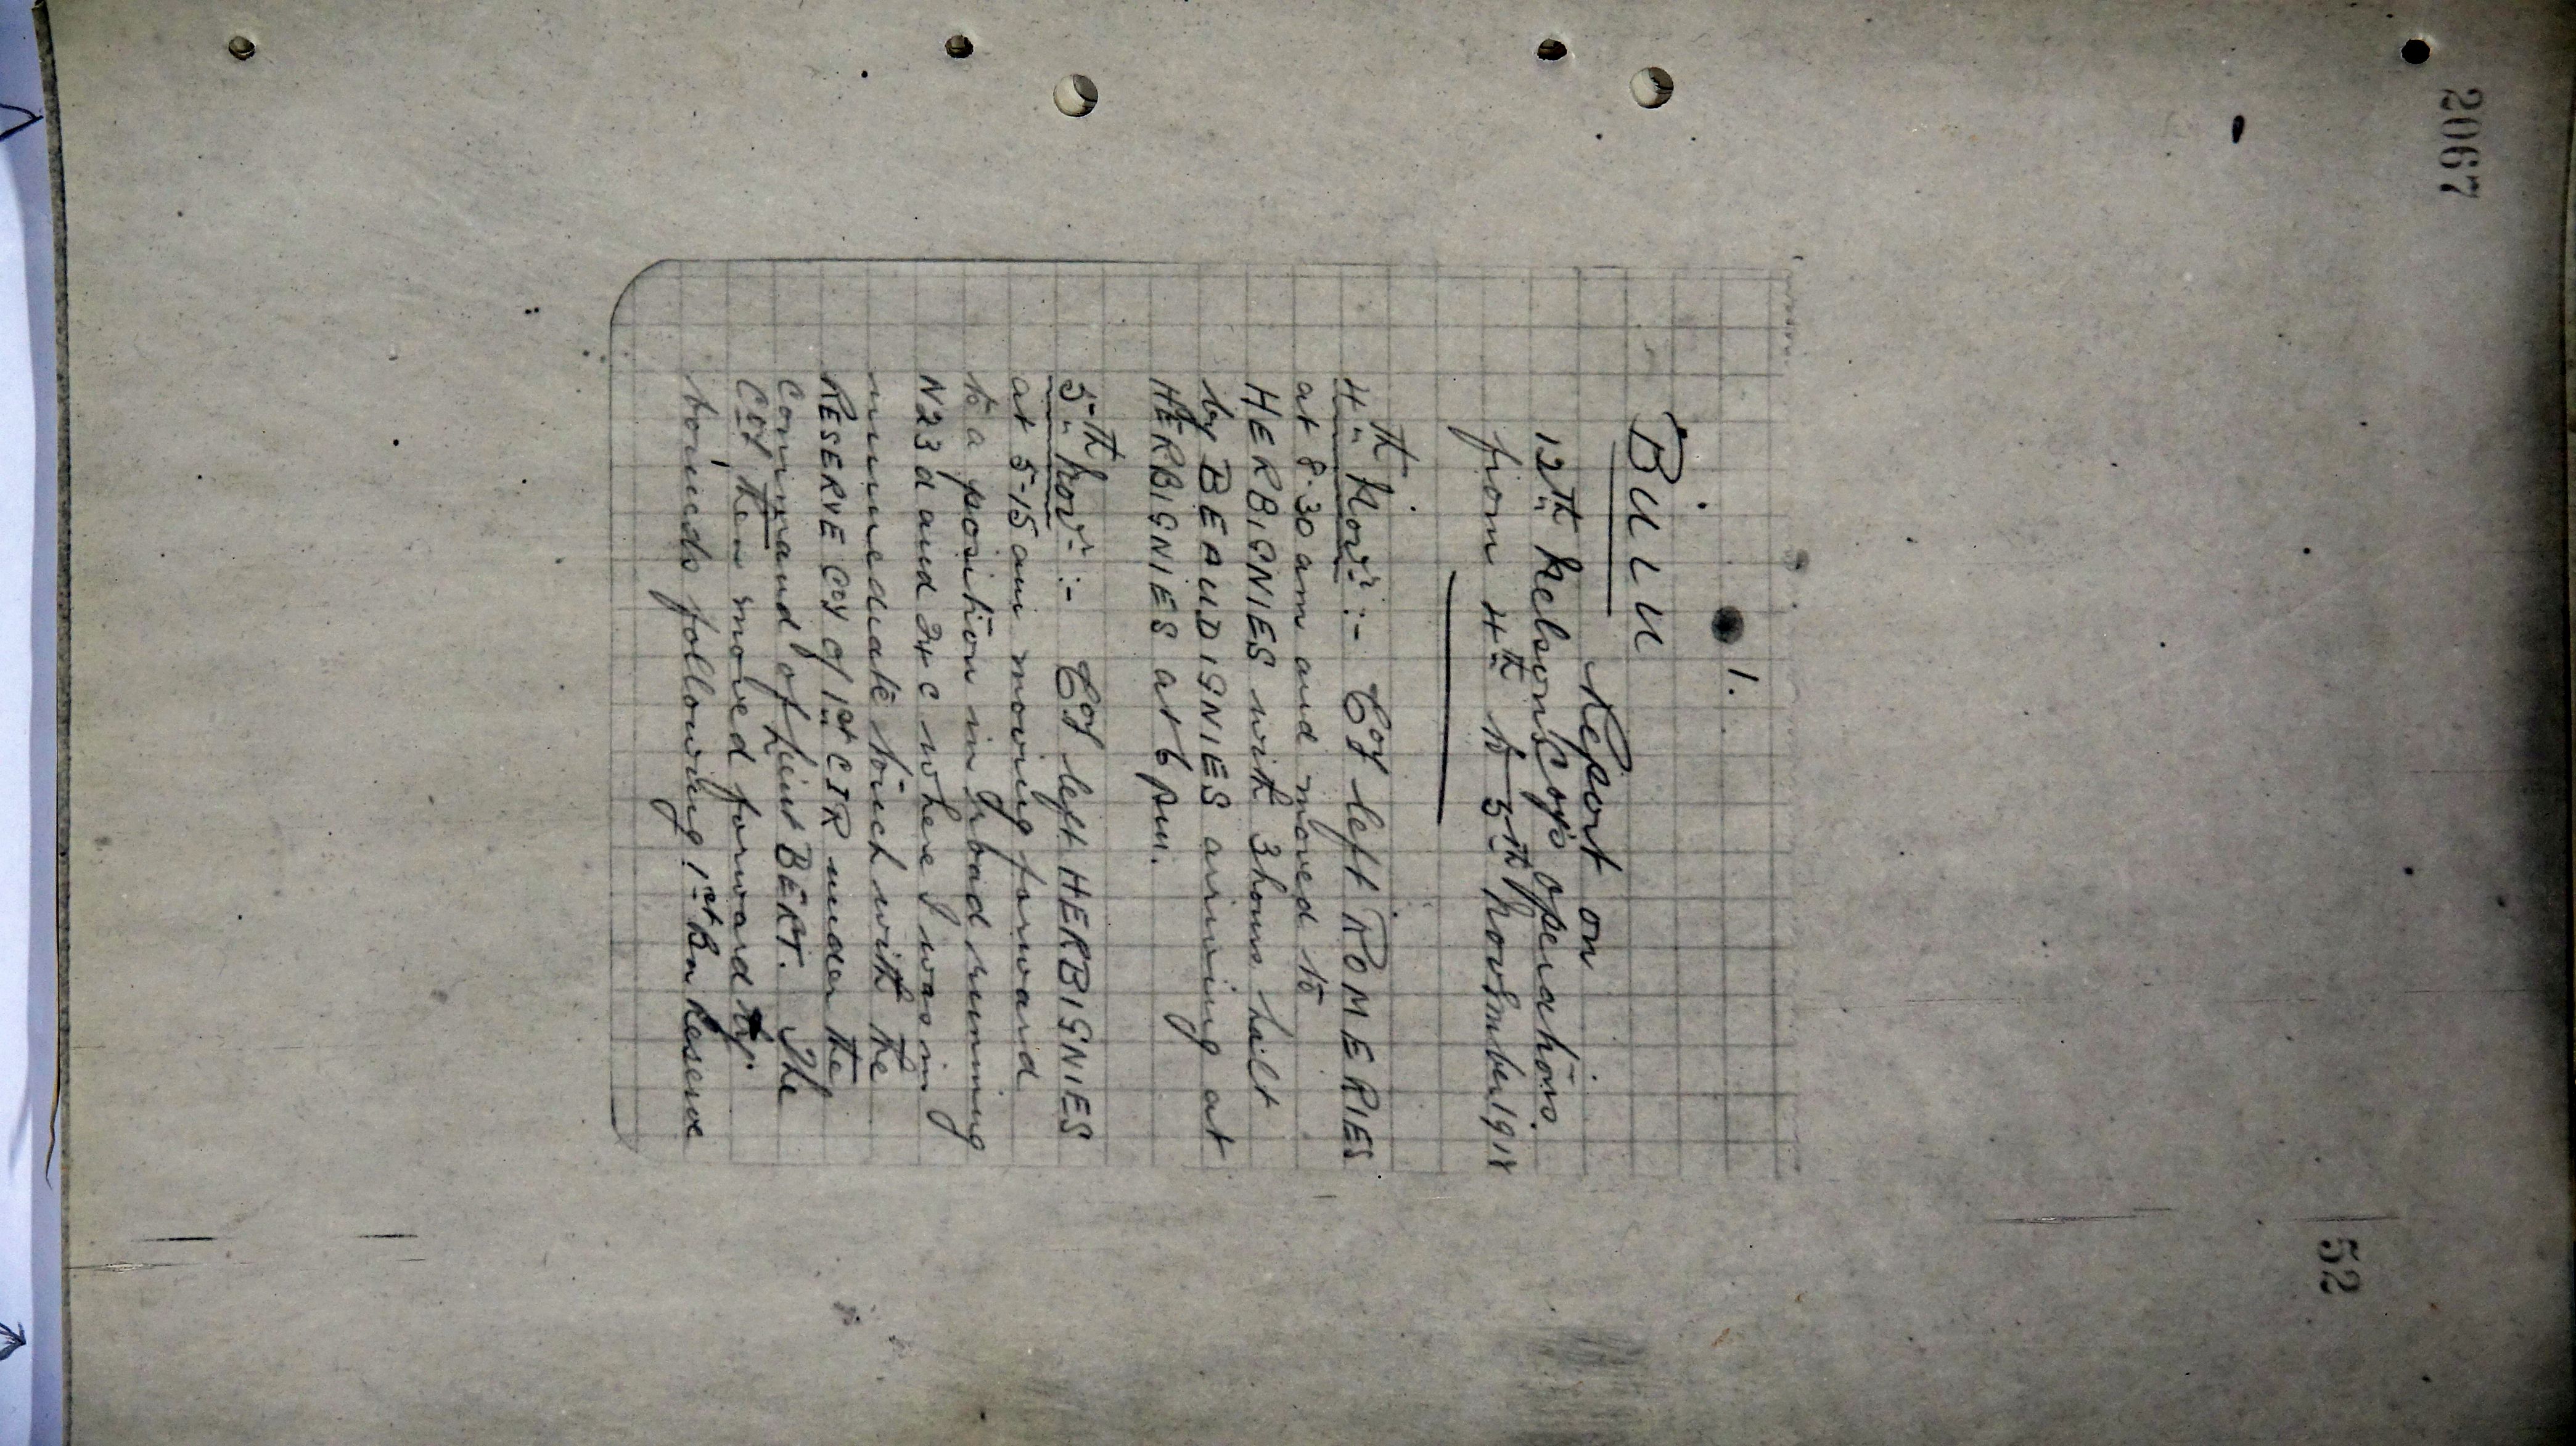 2067
52
1.
BULU
Report on
12th Nelson Coy's operations
from 4th to 5th November 1918
4th Nov:- Coy left ROMERIES
at 8.30 am and moved to
HERBIGNIES with 3 hours halt
by BEAUDIGNIES arriving at
HERBIGNIES at 6 pm.
5th Nov:- Coy left HERBIGNIES
at 5-15 am moving forward
to a position in road running
N23d and 24c where I was in
immediate touch with the
RESERVE COY of 1st CIR under the
command of Lieut BERT. The
Coy then moved forward by
bounds following 1st Bn Reserve